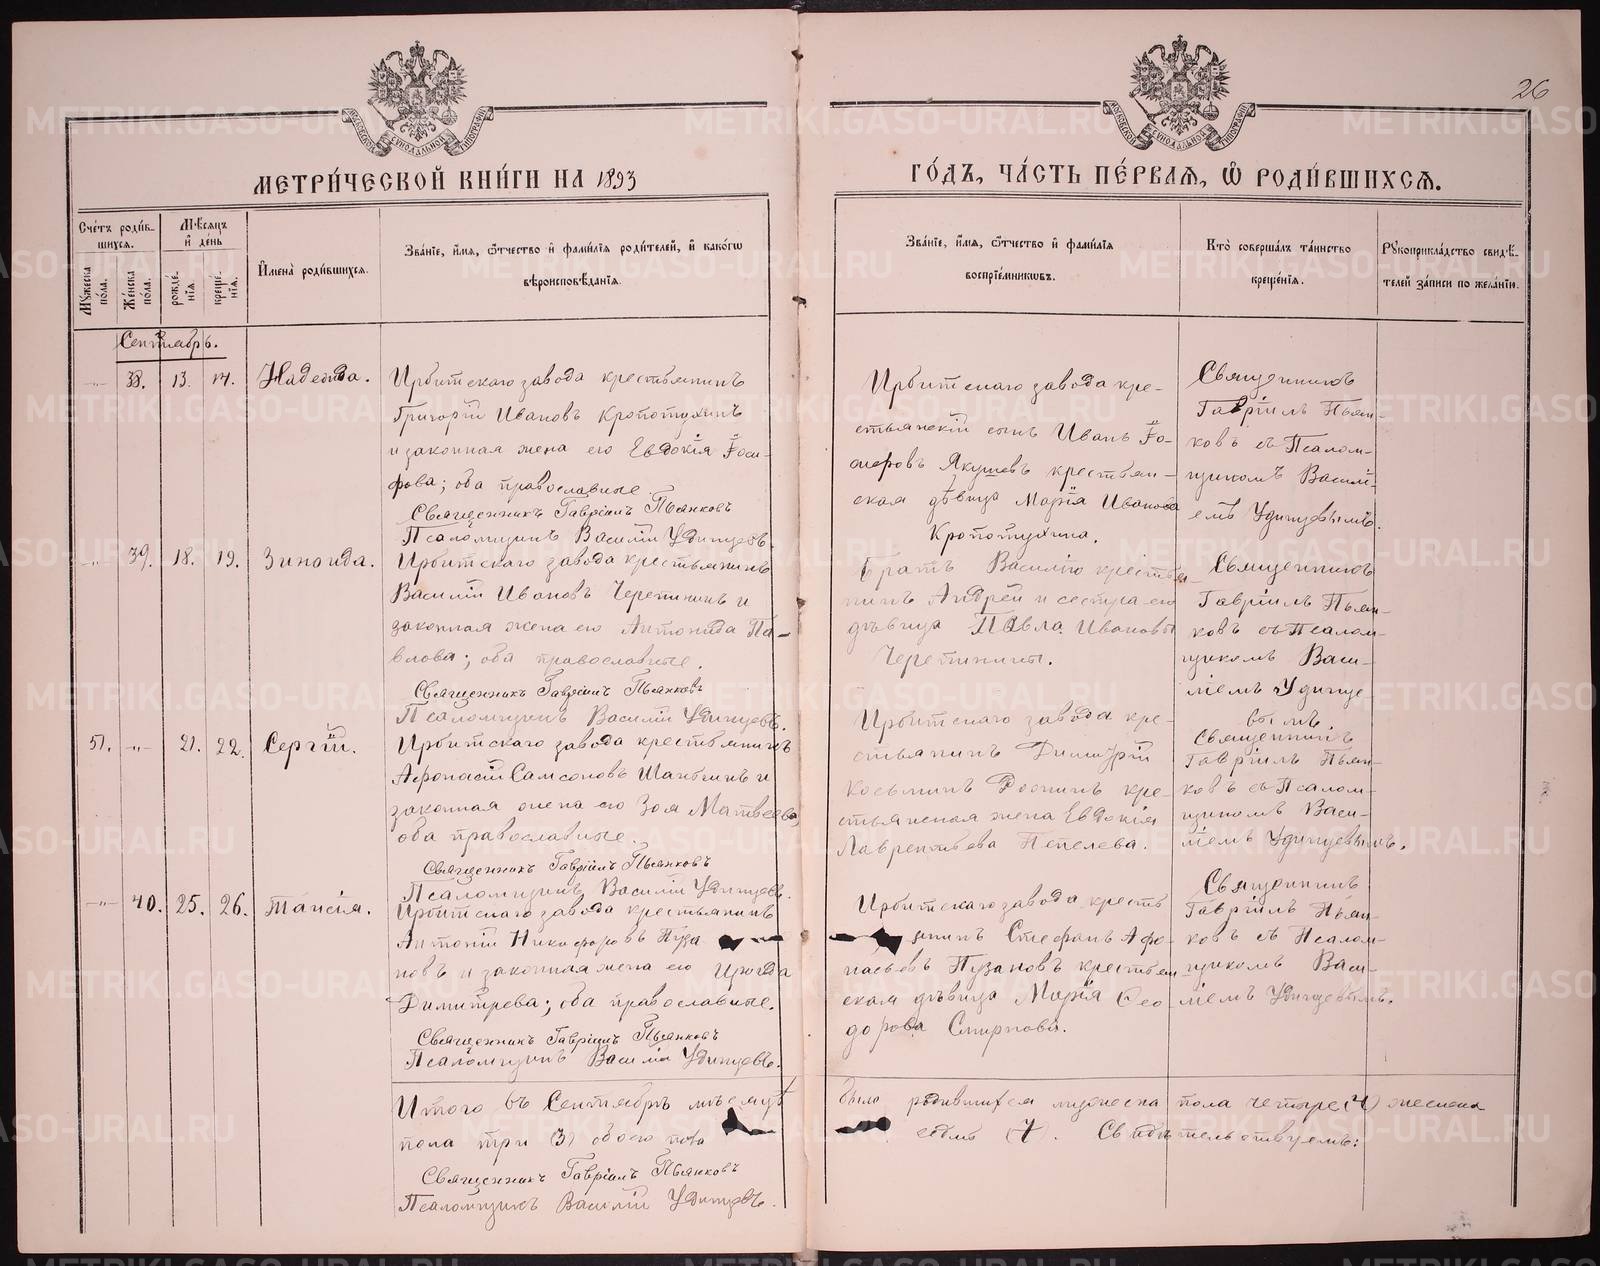 26
МЕТРИЧЕСКОЙ КНИГИ НА 1893
ГОДЪ, ЧАСТЬ ПЕРВАЯ, Ѡ РОДИВШИХСЯ.
Счетъ родив-
шихся.
Мужеска пола.
Женска пола.
Мѣсяцъ и день
рожденія.
крещенія.
Имена родившихся.
Званіе, имя, отчество и фамилія родителей, и какого
вѣроисповѣданія.
Званіе, имя, отчество и фамилія
воспріемниковъ.
Кто совершалъ таинство
крещенія.
Рукоприкладство свидѣ-
телей записи по желанію.
Сентябрь.
-„- 38. 13. 14. Надежда.
Ирбитскаго завода крестьянинъ
Григорій Ивановъ Кропотухинъ
и законная жена его Евдокія Іоси-
фова; оба православные
Священникъ Гавріилъ Пьянковъ
Псаломщикъ Василій Удинцевъ
Ирбитскаго завода кре-
стьянскій сынъ Иванъ Іо-
сифовъ Якушевъ крестьян-
ская дѣвица Марія Иванова
Кропотухина.
Священникъ
Гавріилъ Пьян-
ковъ съ Псалом-
щикомъ Василі-
емъ Удинцевымъ.
-„- 39. 18. 19. Зинаида.
Ирбитскаго завода крестьянинъ
Василій Ивановъ Черепнинъ и
законная жена его Антонида Па-
влова; оба православные.
Священникъ Гавріилъ Пьянковъ
Псаломщикъ Василій Удинцевъ.
Братъ Василію крестья-
нинъ Андрей и сестра его
дѣвица Павла Ивановы
Черепнины.
Священникъ
Гавріилъ Пьян-
ковъ съ Псалом-
щикомъ Васи-
ліемъ Удинце-
вымъ.
51. -„- 21. 22. Сергій.
Ирбитскаго завода крестьянинъ
Афонасій Самсоновъ и
законная жена его Зоя Матвеева,
оба православные.
Священникъ Гавріилъ Пьянковъ
Псаломщикъ Василій Удинцевъ.
Ирбитскаго завода кре-
стьянинъ Димитрій
Косьминъ кре-
стьянская жена Евдокія
Лаврентьева Пепелева.
Священникъ
Гавріилъ Пьян-
ковъ съ Псалом-
щикомъ Васи-
ліемъ Удинцевымъ.
-„- 40. 25. 26. Таисія.
Ирбитскаго завода крестьянинъ
Антоній Никифоровъ Пуза
новъ и законная жена его Ироида
Димитрева; оба православные.
Священникъ Гавріилъ Пьянковъ
Псаломщикъ Василій Удинцевъ.
Ирбитскаго завода кресть
янинъ Стефанъ Афо-
насьевъ Пузановъ крестьян
ская дѣвица Марія Ѳео-
дорова Смирнова.
Священникъ
Гавріилъ Пьян-
ковъ съ Псалом-
щикомъ Васи-
ліемъ Удинцевымъ.
Итого въ Сентябрѣ мѣсяцѣ было родившихся мужеска пола четыре (4) женска
пола три (3) обоего пола седмь (7). Свидѣтельствуемъ:
Священникъ Гавріилъ Пьянковъ
Псаломщикъ Василій Удинцевъ.
METRIKI.GASO-URAL.RU